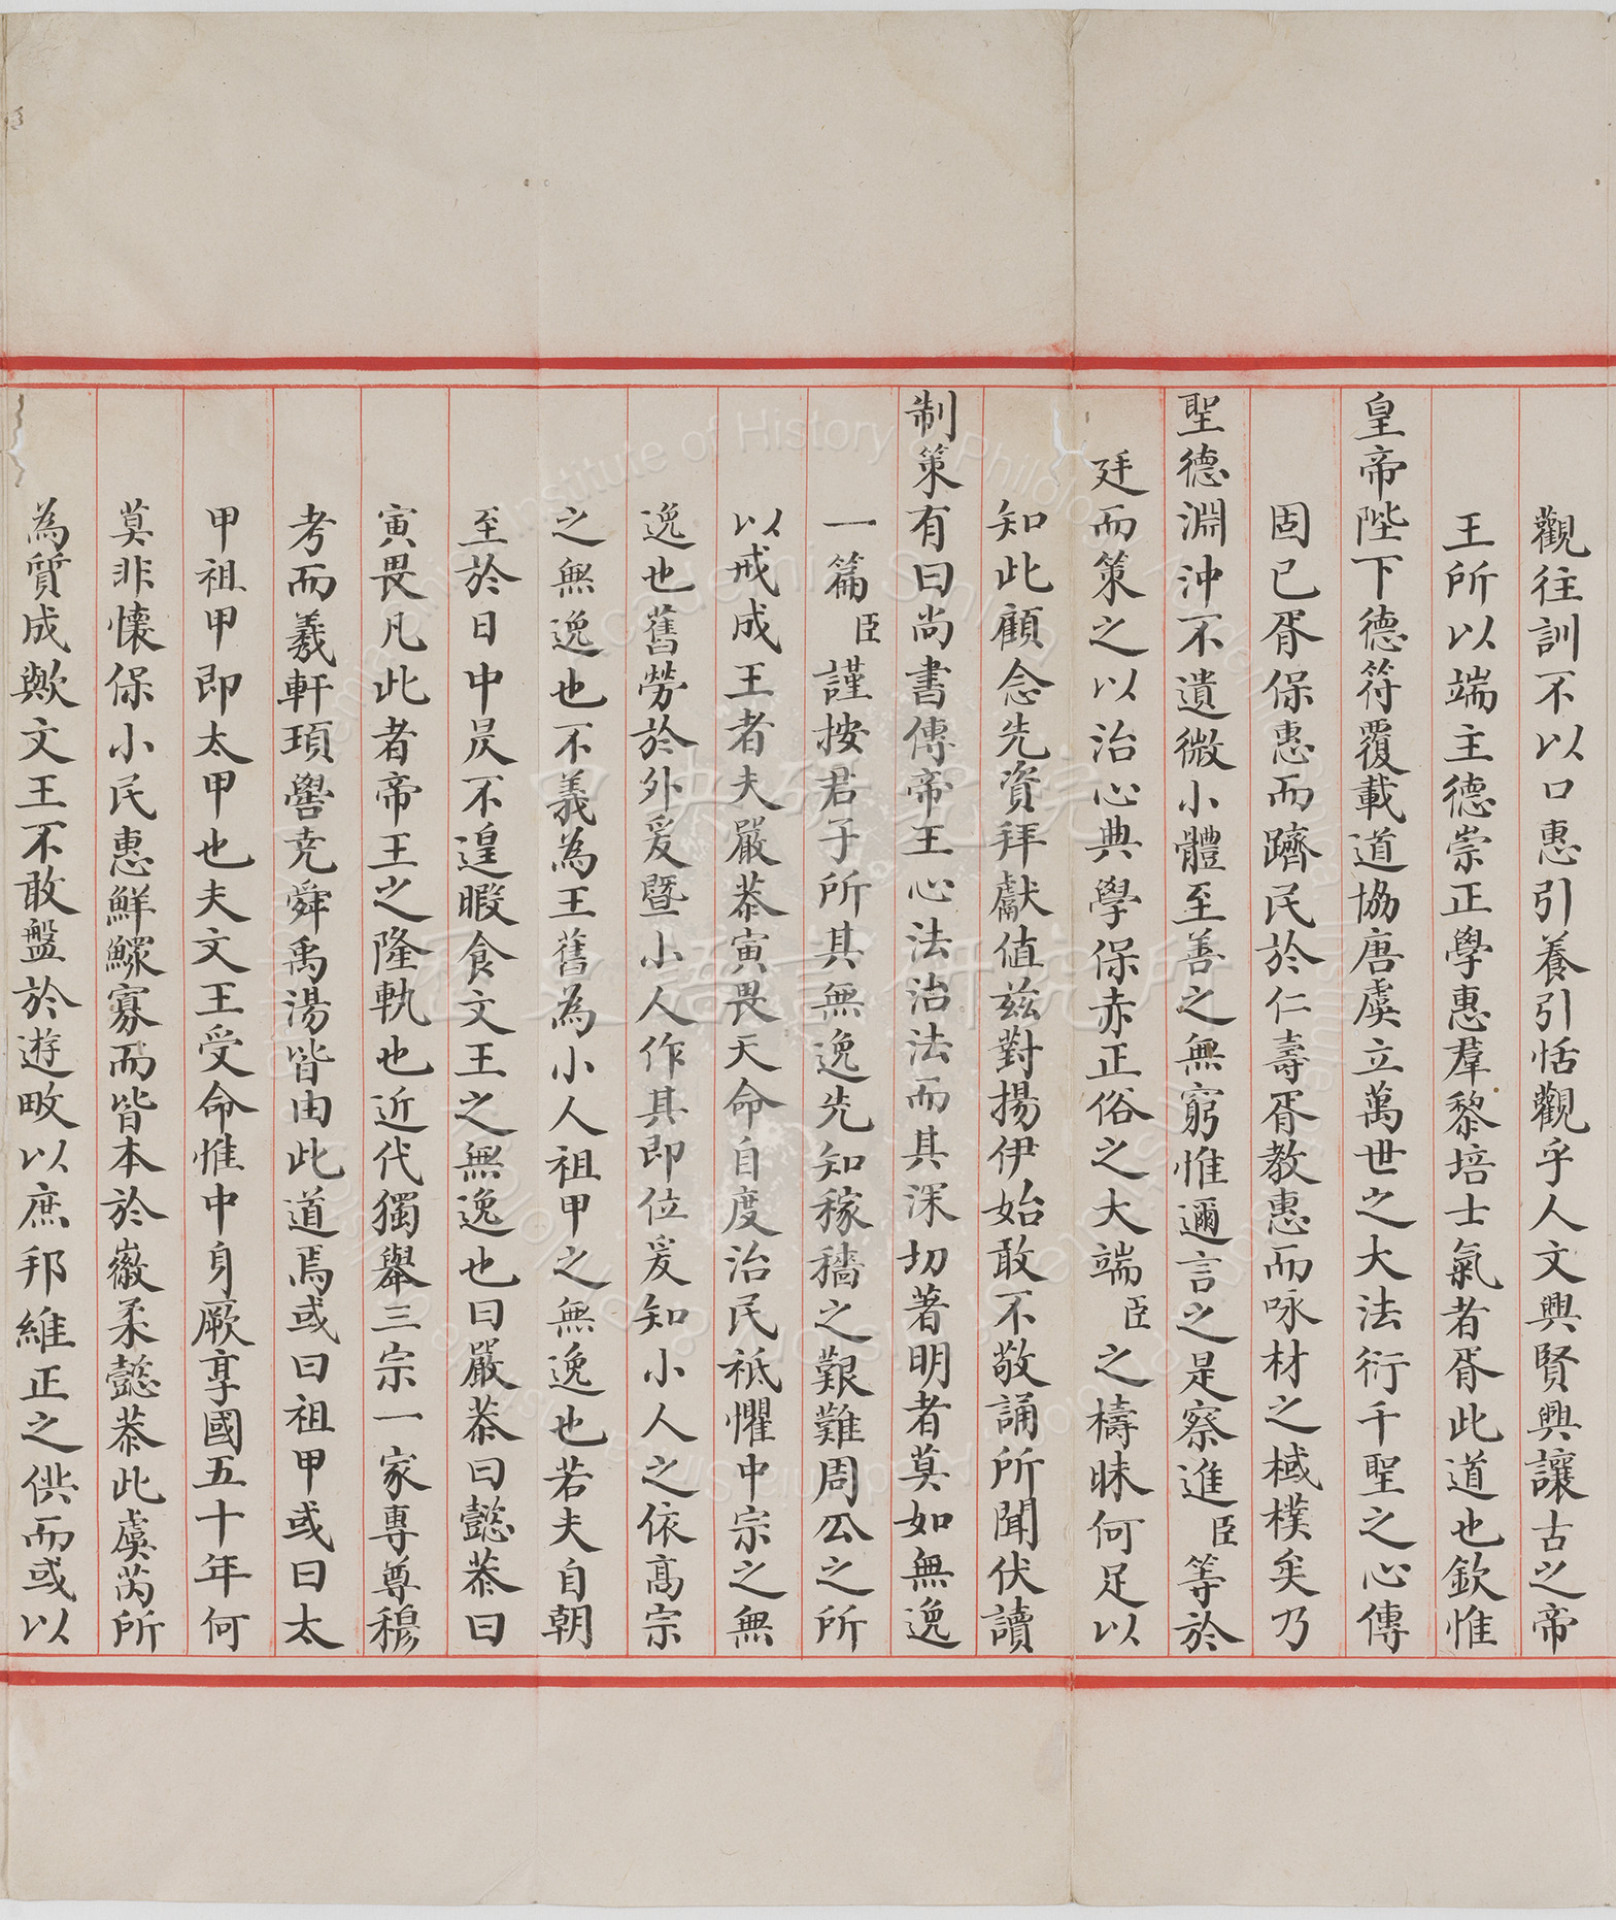 觀往訓不以口惠引養引恬觀乎人文興賢興讓古之帝
王所以端主德崇正學惠羣黎培士氣者胥此道也欽惟
皇帝陛下德符覆載道協唐虞立萬世之大法衍千聖之心傳
固已胥保惠而躋民於仁壽胥教惠而咏材之棫樸矣乃
聖德淵沖不遺微小體至善之無窮惟邇言之是察進臣等於
廷而策之以治心典學保赤正俗之大端臣之檮昧何足以
知此顧念先資拜獻值茲對揚伊始敢不敬誦所聞伏讀
制策有曰尚書傳帝王心法治法而其深切著明者莫如無逸
一篇臣謹按君子所其無逸先知稼穡之艱難周公之所
以戒成王者夫嚴恭寅畏天命自度治民祗懼中宗之無
逸也舊勞於外爰暨小人作其即位爰知小人之依高宗
之無逸也不義為王舊為小人祖甲之無逸也若夫自朝
至於日中昃不遑暇食文王之無逸也曰嚴恭曰懿恭曰
寅畏凡此者帝王之隆軌也近代獨舉三宗一家專尊穆
考而羲軒頊嚳堯舜禹湯皆由此道焉或曰祖甲或曰太
甲祖甲即太甲也夫文王受命惟中身厥享國五十年何
莫非懷保小民惠鮮鰥寡而皆本於徽柔懿恭此虞芮所
為質成歟文王不敢盤於遊畋以庶邦維正之供而或以